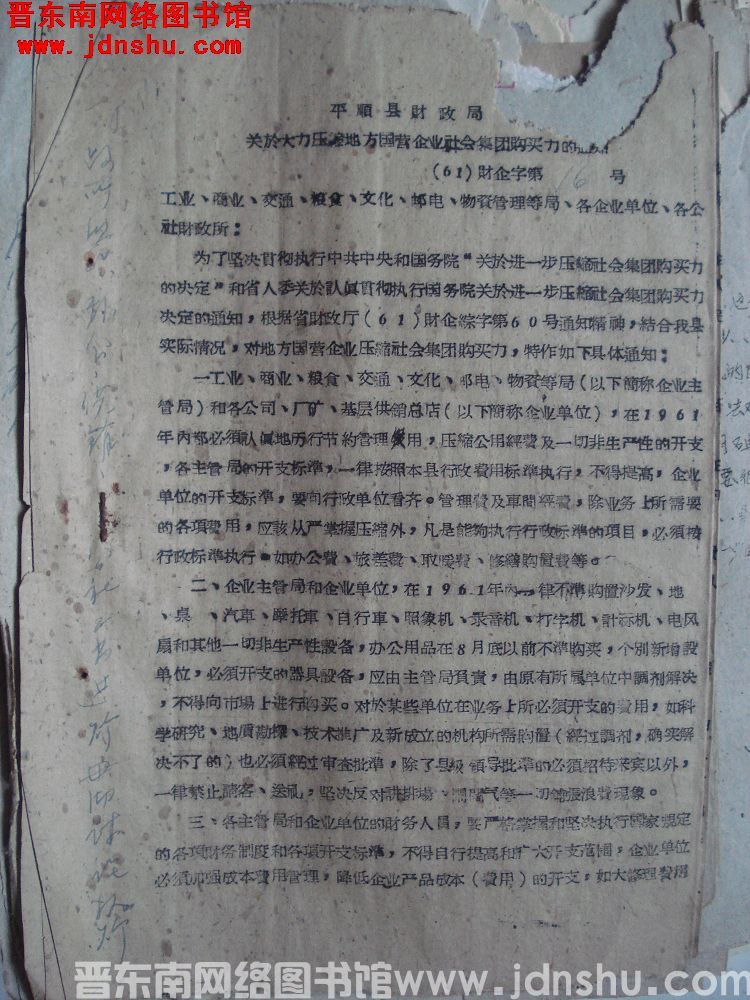 晋东南网络图书馆
www.jdnshu.com
平順县財政局
关於大力压缩地方国营企业社会集团购买力的
(61)財企字第16号
工业、商业、交通、粮食、文化、邮电、物資管理等局、各企业单位、各公
社財政所：
为了坚决貫彻执行中共中央和国务院“关於进一步压縮社会集团购买力
的决定”和省人委关於認眞貫彻执行国务院关於进一步压縮社会集团购买力
决定的通知，根据省財政厅(61)財企綜字第60号通知精神，結合我县
实际情况，对地方国营企业压縮社会集团购买力，特作如下具体通知：
一工业、商业、粮食、交通、文化、邮电、物資等局(以下簡称企业主
管局)和各公司、厂矿、基层供銷总店(以下簡称企业单位)，在1961
年內都必須認眞地厉行节約管理费用，压縮公用經費及一切非生产性的开支
，各主管局的开支标準，一律按照本县行政費用标準执行，不得提高，企业
单位的开支标準，要向行政单位看齐。管理費及車間經費，除业务上所需要
的各項費用，应該从严掌握压縮外，凡是能夠执行行政标準的項目，必須按
行政标準执行。如办公費、旅差費、取暖費、修繕购置費等。
二、企业主管局和企业单位，在1961年內一律不準购置沙发、地
桌、汽車、摩托車、自行車、照象机、录音机、打字机、計标机、电风
扇和其他一切非生产性設备，办公用品在8月底以前不準购买，个別新增設
单位，必須开支的器具設备，应由主管局負責，由原有所属单位中調剂解决
，不得向市場上进行购买。对於某些单位在业务上所必須开支的費用，如科
学研究、地质勘探、技术推广及新成立的机构所需购置(經过調剂，确实解
决不了的)也必須經过审查批準，除了县級領导批準的必須招待来宾以外，
一律禁止請客、送礼，坚决反对讲排場、闊气等一切鋪張浪費現象。
三、各主管局和企业单位的財务人員，要严格掌握和坚决执行国家規定
的各項財务制度和各項开支标準，不得自行提高和扩大开支范围，企业单位
必須加强成本費用管理，降低企业产品成本(費用)的开支，如大修理費用
晋东南网络图书馆 www.jdnshu.com